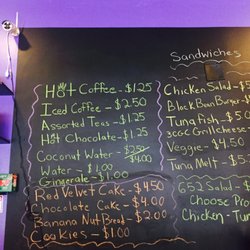 Hot Coffee - $1.25
Iced Coffee - $2.50
Assorted Teas - $1.25
Hot Chocolate - $1.25
Coconut Water - $2.50
$4.00
Water - $1.00
Gingerale $1.00
Red Velvet Cake - $4.50
Chocolate Cake - $4.00
Banana Nut Bread - $2.00
Cookies - $1.00
Sandwiches
Chicken Salad - $5
Black Bean Burger
Tuna Fish - $5
3CGC Grilled cheese
Veggie - $4.50
Tuna Melt - $5
G52 Salad -
Choose Pro
Chicken - Tu